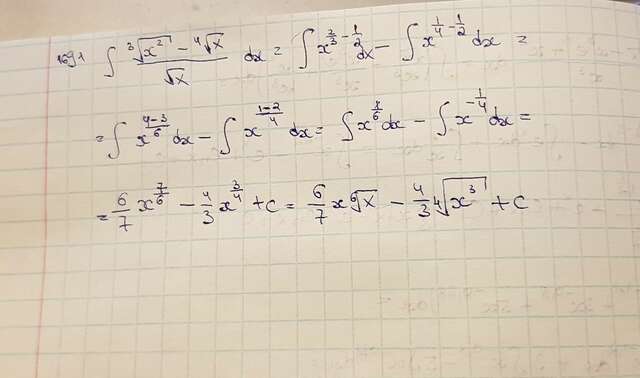 1691 ∫ (∛(x²) − ∜x)/√x dx = ∫ x^(2/3 − 1/2) dx − ∫ x^(1/4 − 1/2) dx =
= ∫ x^((4−3)/6) dx − ∫ x^((1−2)/4) dx = ∫ x^(1/6) dx − ∫ x^(−1/4) dx =
= 6/7 x^(7/6) − 4/3 x^(3/4) + c = 6/7 x ⁶√x − 4/3 ∜(x³) + c